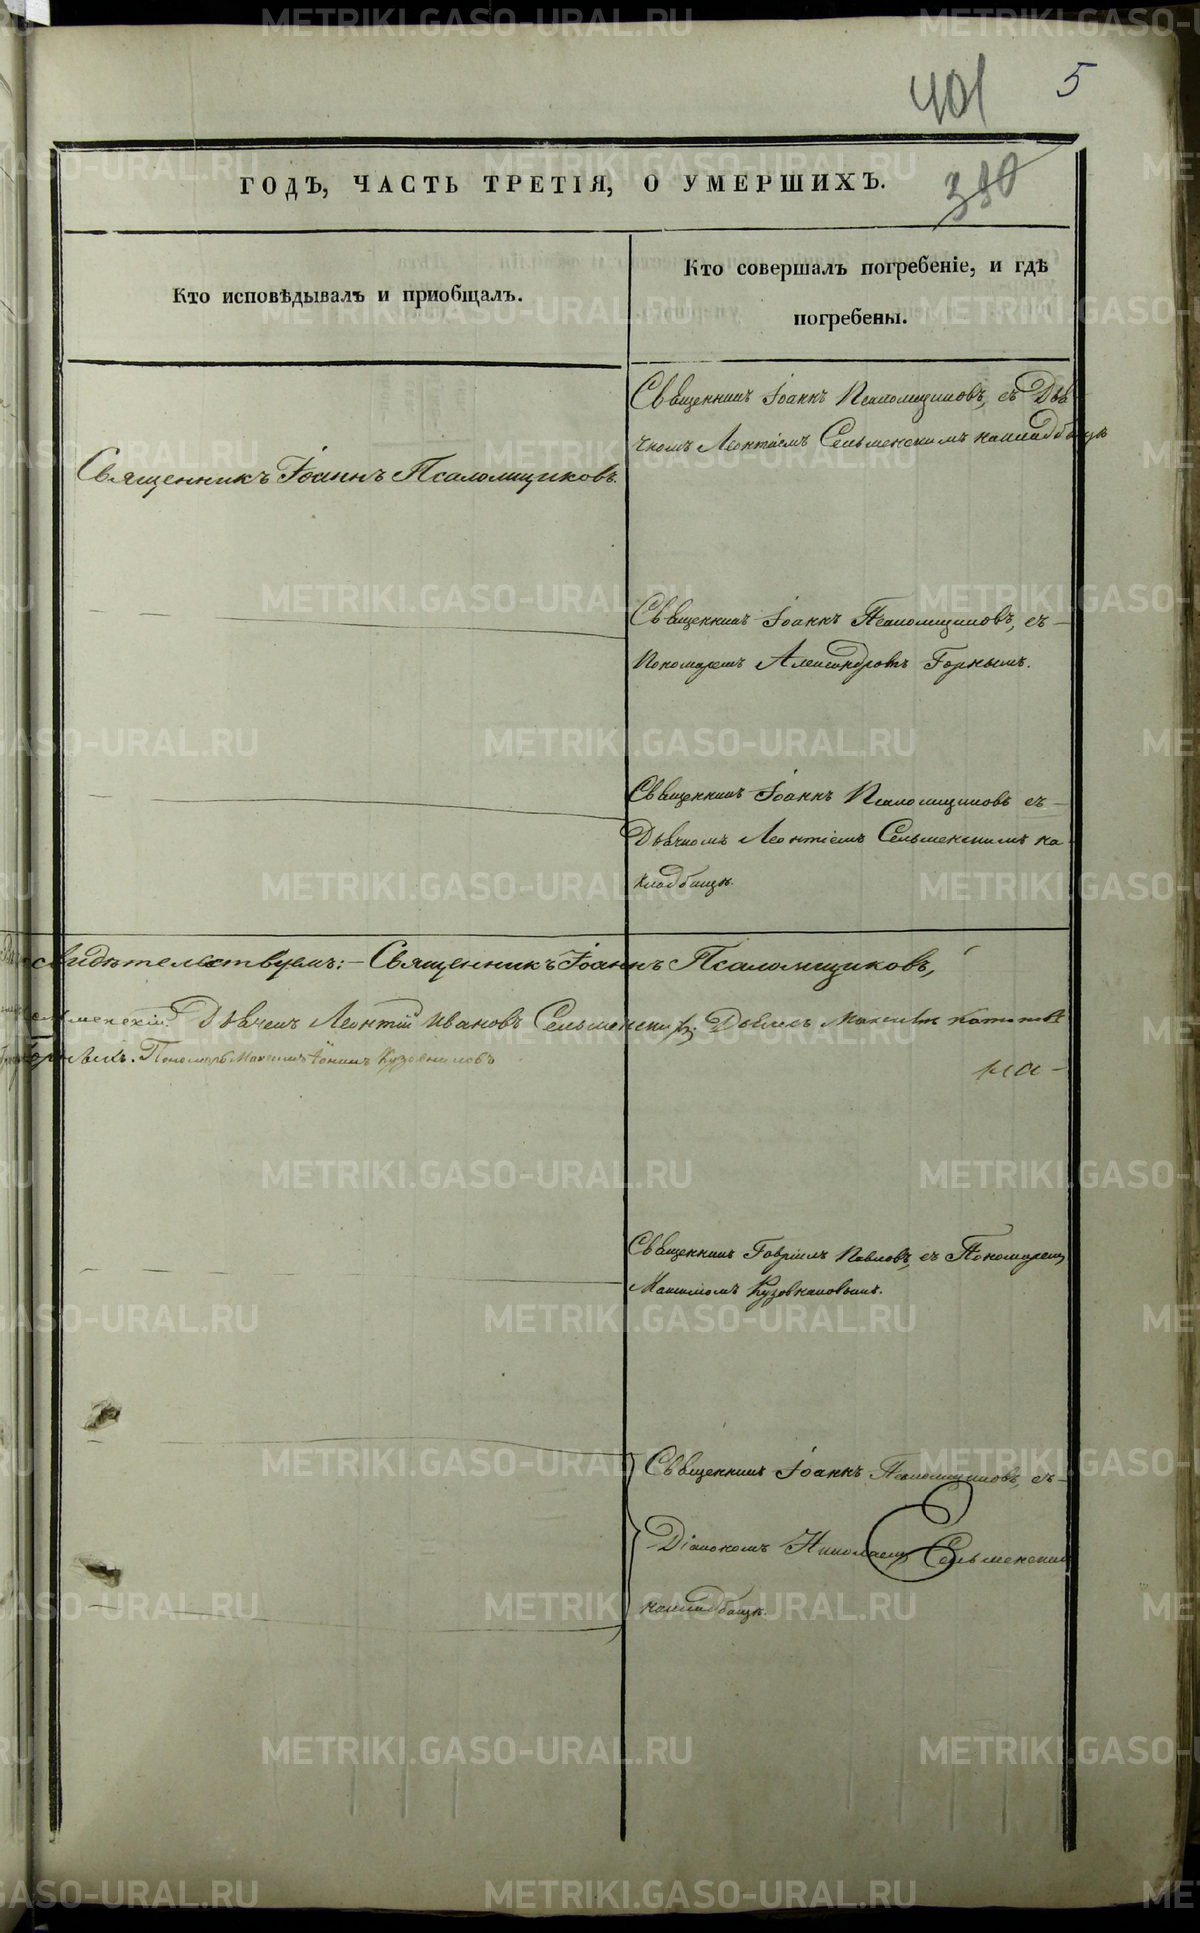 401
5
ГОДЪ, ЧАСТЬ ТРЕТІЯ, О УМЕРШИХЪ.
380
Кто исповѣдывалъ и приобщалъ.
Кто совершалъ погребеніе, и гдѣ
погребены.
Священникъ Іоаннъ Псаломщиковъ, съ Дьяч
комъ Леонтіемъ Сельменскимъ накладбищѣ
Священникъ Іоаннъ Псаломщиковъ.
Священникъ Іоаннъ Псаломщиковъ, съ
Пономаремъ Александромъ Горнымъ.
Священникъ Іоаннъ Псаломщиковъ съ
Дьячкомъ Леонтіемъ Сельменскимъ на
кладбищѣ.
свидѣтельствуемъ: – Священникъ Іоаннъ Псаломщиковъ,
Дьячекъ Леонтій Ивановъ Сельменскій,
Пономарь Максимъ Кузовниковъ
Священникъ Гавріилъ Павловъ, съ Пономаремъ
Максимомъ Кузовниковымъ.
Священникъ Іоаннъ Псаломщиковъ, съ
Діакономъ Николаемъ Сельменскимъ
накладбищѣ.
METRIKI.GASO-URAL.RU